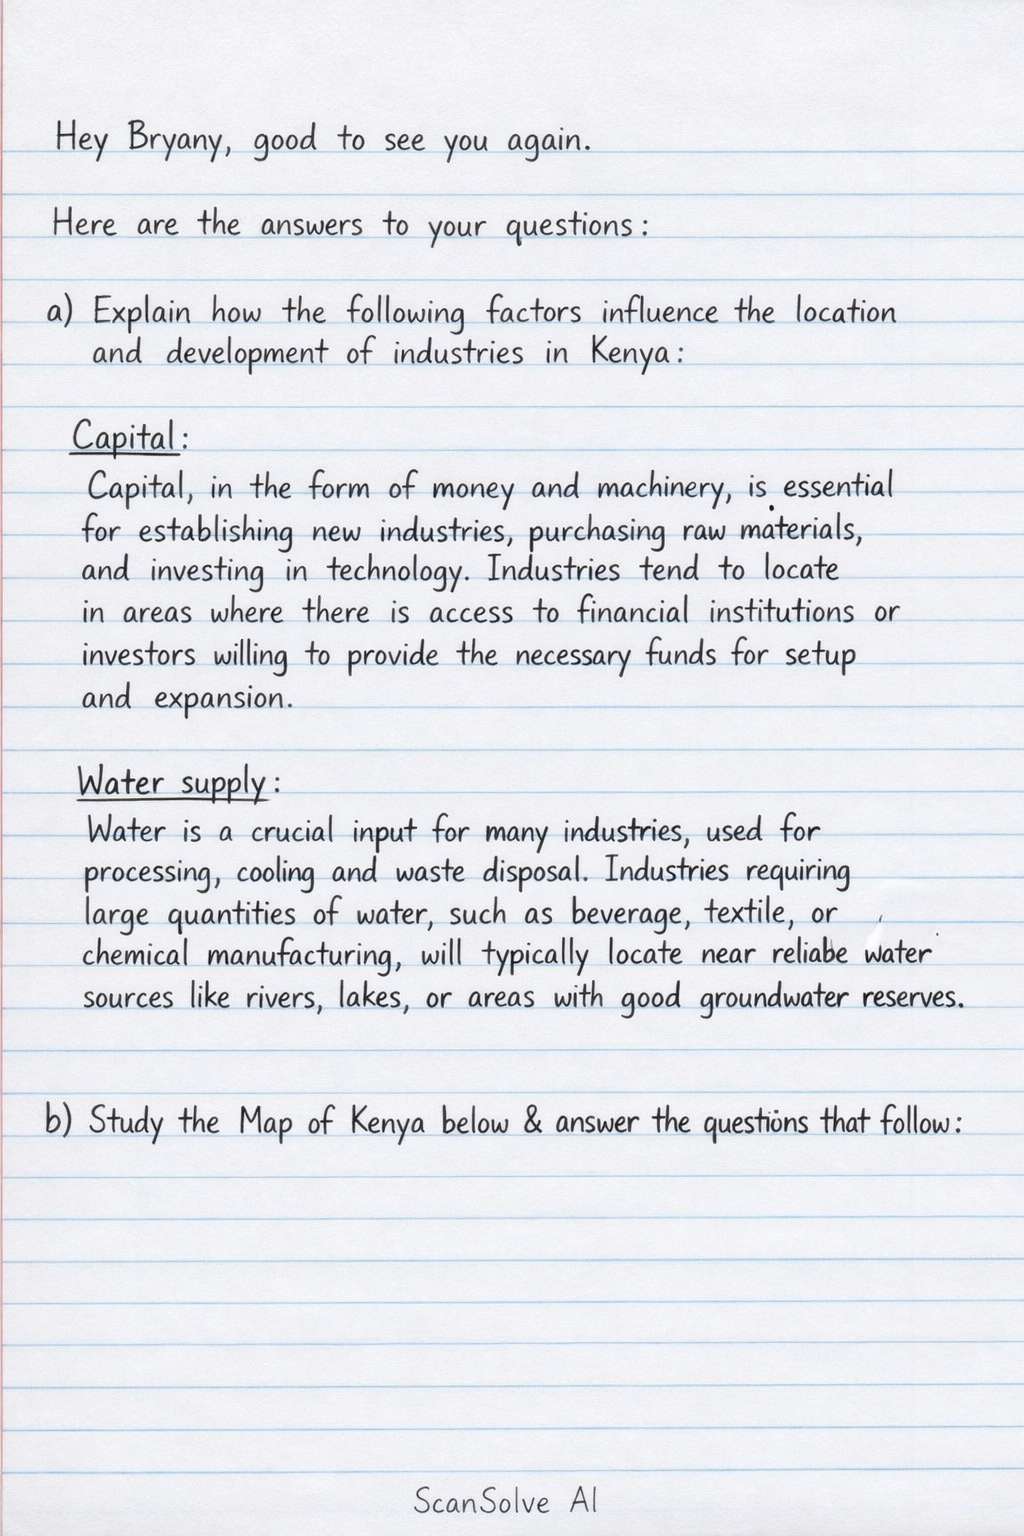 Hey Bryany, good to see you again.
Here are the answers to your questions:
a) Explain how the following factors influence the location
and development of industries in Kenya:
Capital:
Capital, in the form of money and machinery, is essential
for establishing new industries, purchasing raw materials,
and investing in technology. Industries tend to locate
in areas where there is access to financial institutions or
investors willing to provide the necessary funds for setup
and expansion.
Water supply:
Water is a crucial input for many industries, used for
processing, cooling and waste disposal. Industries requiring
large quantities of water, such as beverage, textile, or
chemical manufacturing, will typically locate near reliabe water
sources like rivers, lakes, or areas with good groundwater reserves.
b) Study the Map of Kenya below & answer the questions that follow:
ScanSolve AI